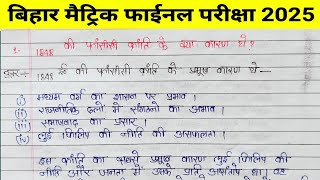 बिहार मैट्रिक फाईनल परीक्षा 2025
1. 1848 की फ्रांसीसी क्रांति के क्या कारण थे?
उत्तर- 1848 ई० की फ्रांसीसी क्रांति के प्रमुख कारण थे—
(i) मध्यम वर्ग का शासन पर प्रभाव।
(ii) राजनीतिक दलों में संगठनों का अभाव।
(iii) समाजवाद का प्रसार।
(iv) लुई फिलिप की नीति की असफलता।
इस क्रांति का सबसे प्रमुख कारण लुई फिलिप की
नीति और जनता में उनके प्रति असंतोष था। वह